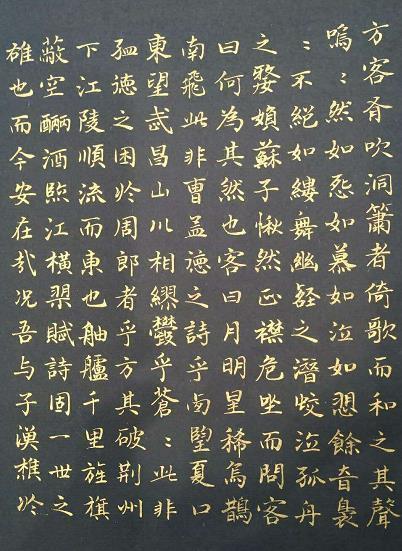 方客有吹洞簫者倚歌而和之其聲
嗚：然如怨如慕如泣如愬餘音裊
：不絕如縷舞幽壑之潛蛟泣孤舟
之嫠婦蘇子愀然正襟危坐而問客
曰何為其然也客曰月明星稀烏鵲
南飛此非曹孟德之詩乎西望夏口
東望武昌山川相繆鬱乎蒼：此非
孟德之困於周郎者乎方其破荊州
下江陵順流而東也舳艫千里旌旗
蔽空釃酒臨江橫槊賦詩固一世之
雄也而今安在哉況吾与子漁樵於